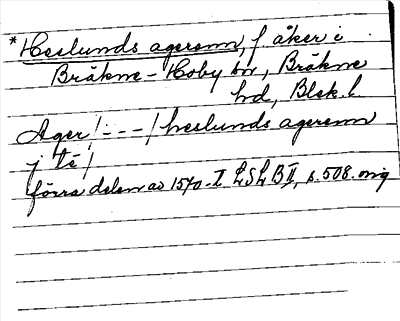 *Heslunds agerenn, f åker i
Bräkne-Hoby sn, Bräkne
hd, Blek. l
Ager/---/heslunds agerenn
j té/
förra delen av 1570-t LSLB II, s. 508. orig